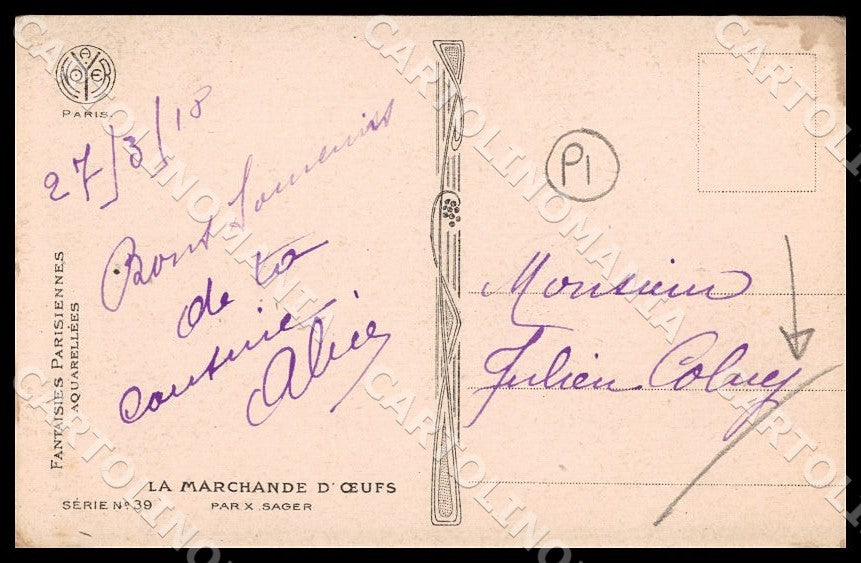 NOYER
PARIS.
27/3/18
Bons Souvenirs
de ta
cousine
Alice
FANTAISIES PARISIENNES
AQUARELLÉES
LA MARCHANDE D'ŒUFS
SÉRIE No 39
PAR X. SAGER
P1
Monsieur
Julien
CARTOLINOMANIA